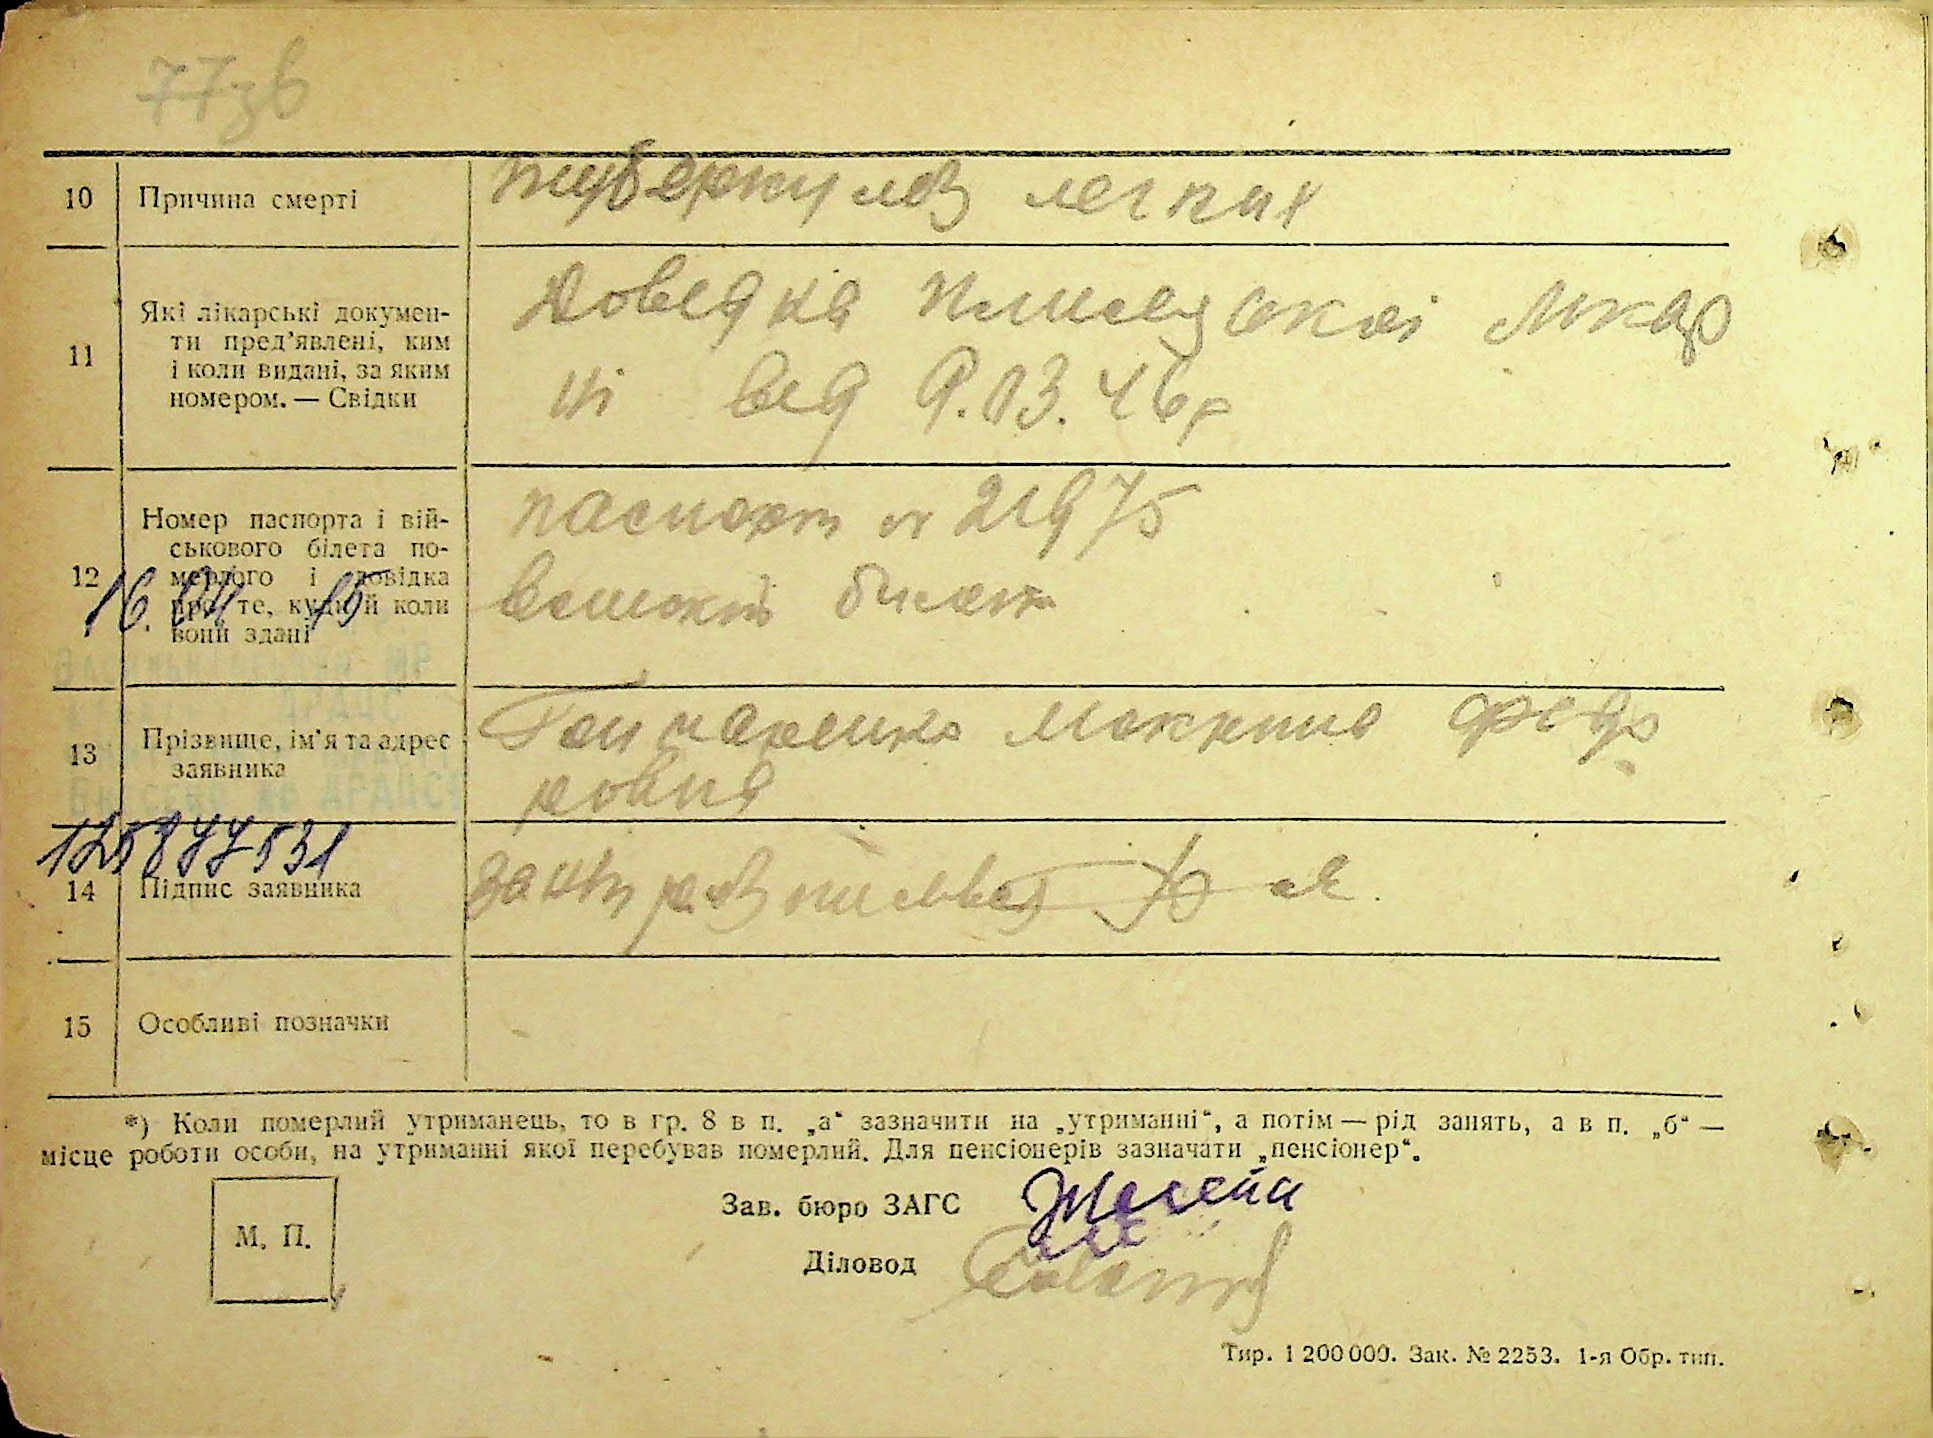 77зв
10 Причина смерті туберкулоз легких
11 Які лікарські докумен-
ти пред’явлені, ким
і коли видані, за яким
номером. — Свідки
Довідка лікар
ні від 9.03.46р
12 Номер паспорта і вій-
ськового білета по-
мерлого і довідка
про те, куди й коли
вони здані
паспорт № 21975
білет
16.04 15
13 Прізвище, ім’я та адрес
заявника
Федо
ровна
125877531
14 Підпис заявника
15 Особливі позначки
*) Коли померлий утриманець, то в гр. 8 в п. „а“ зазначити на „утриманні“, а потім — рід занять, а в п. „б“ —
місце роботи особи, на утриманні якої перебував померлий. Для пенсіонерів зазначати „пенсіонер“.
М. П.
Зав. бюро ЗАГС
Діловод
Тир. 1 200 000. Зак. № 2253. 1-я Обр. тип.